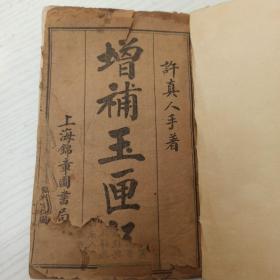 許真人手著
增補玉匣
上海錦章圖書局